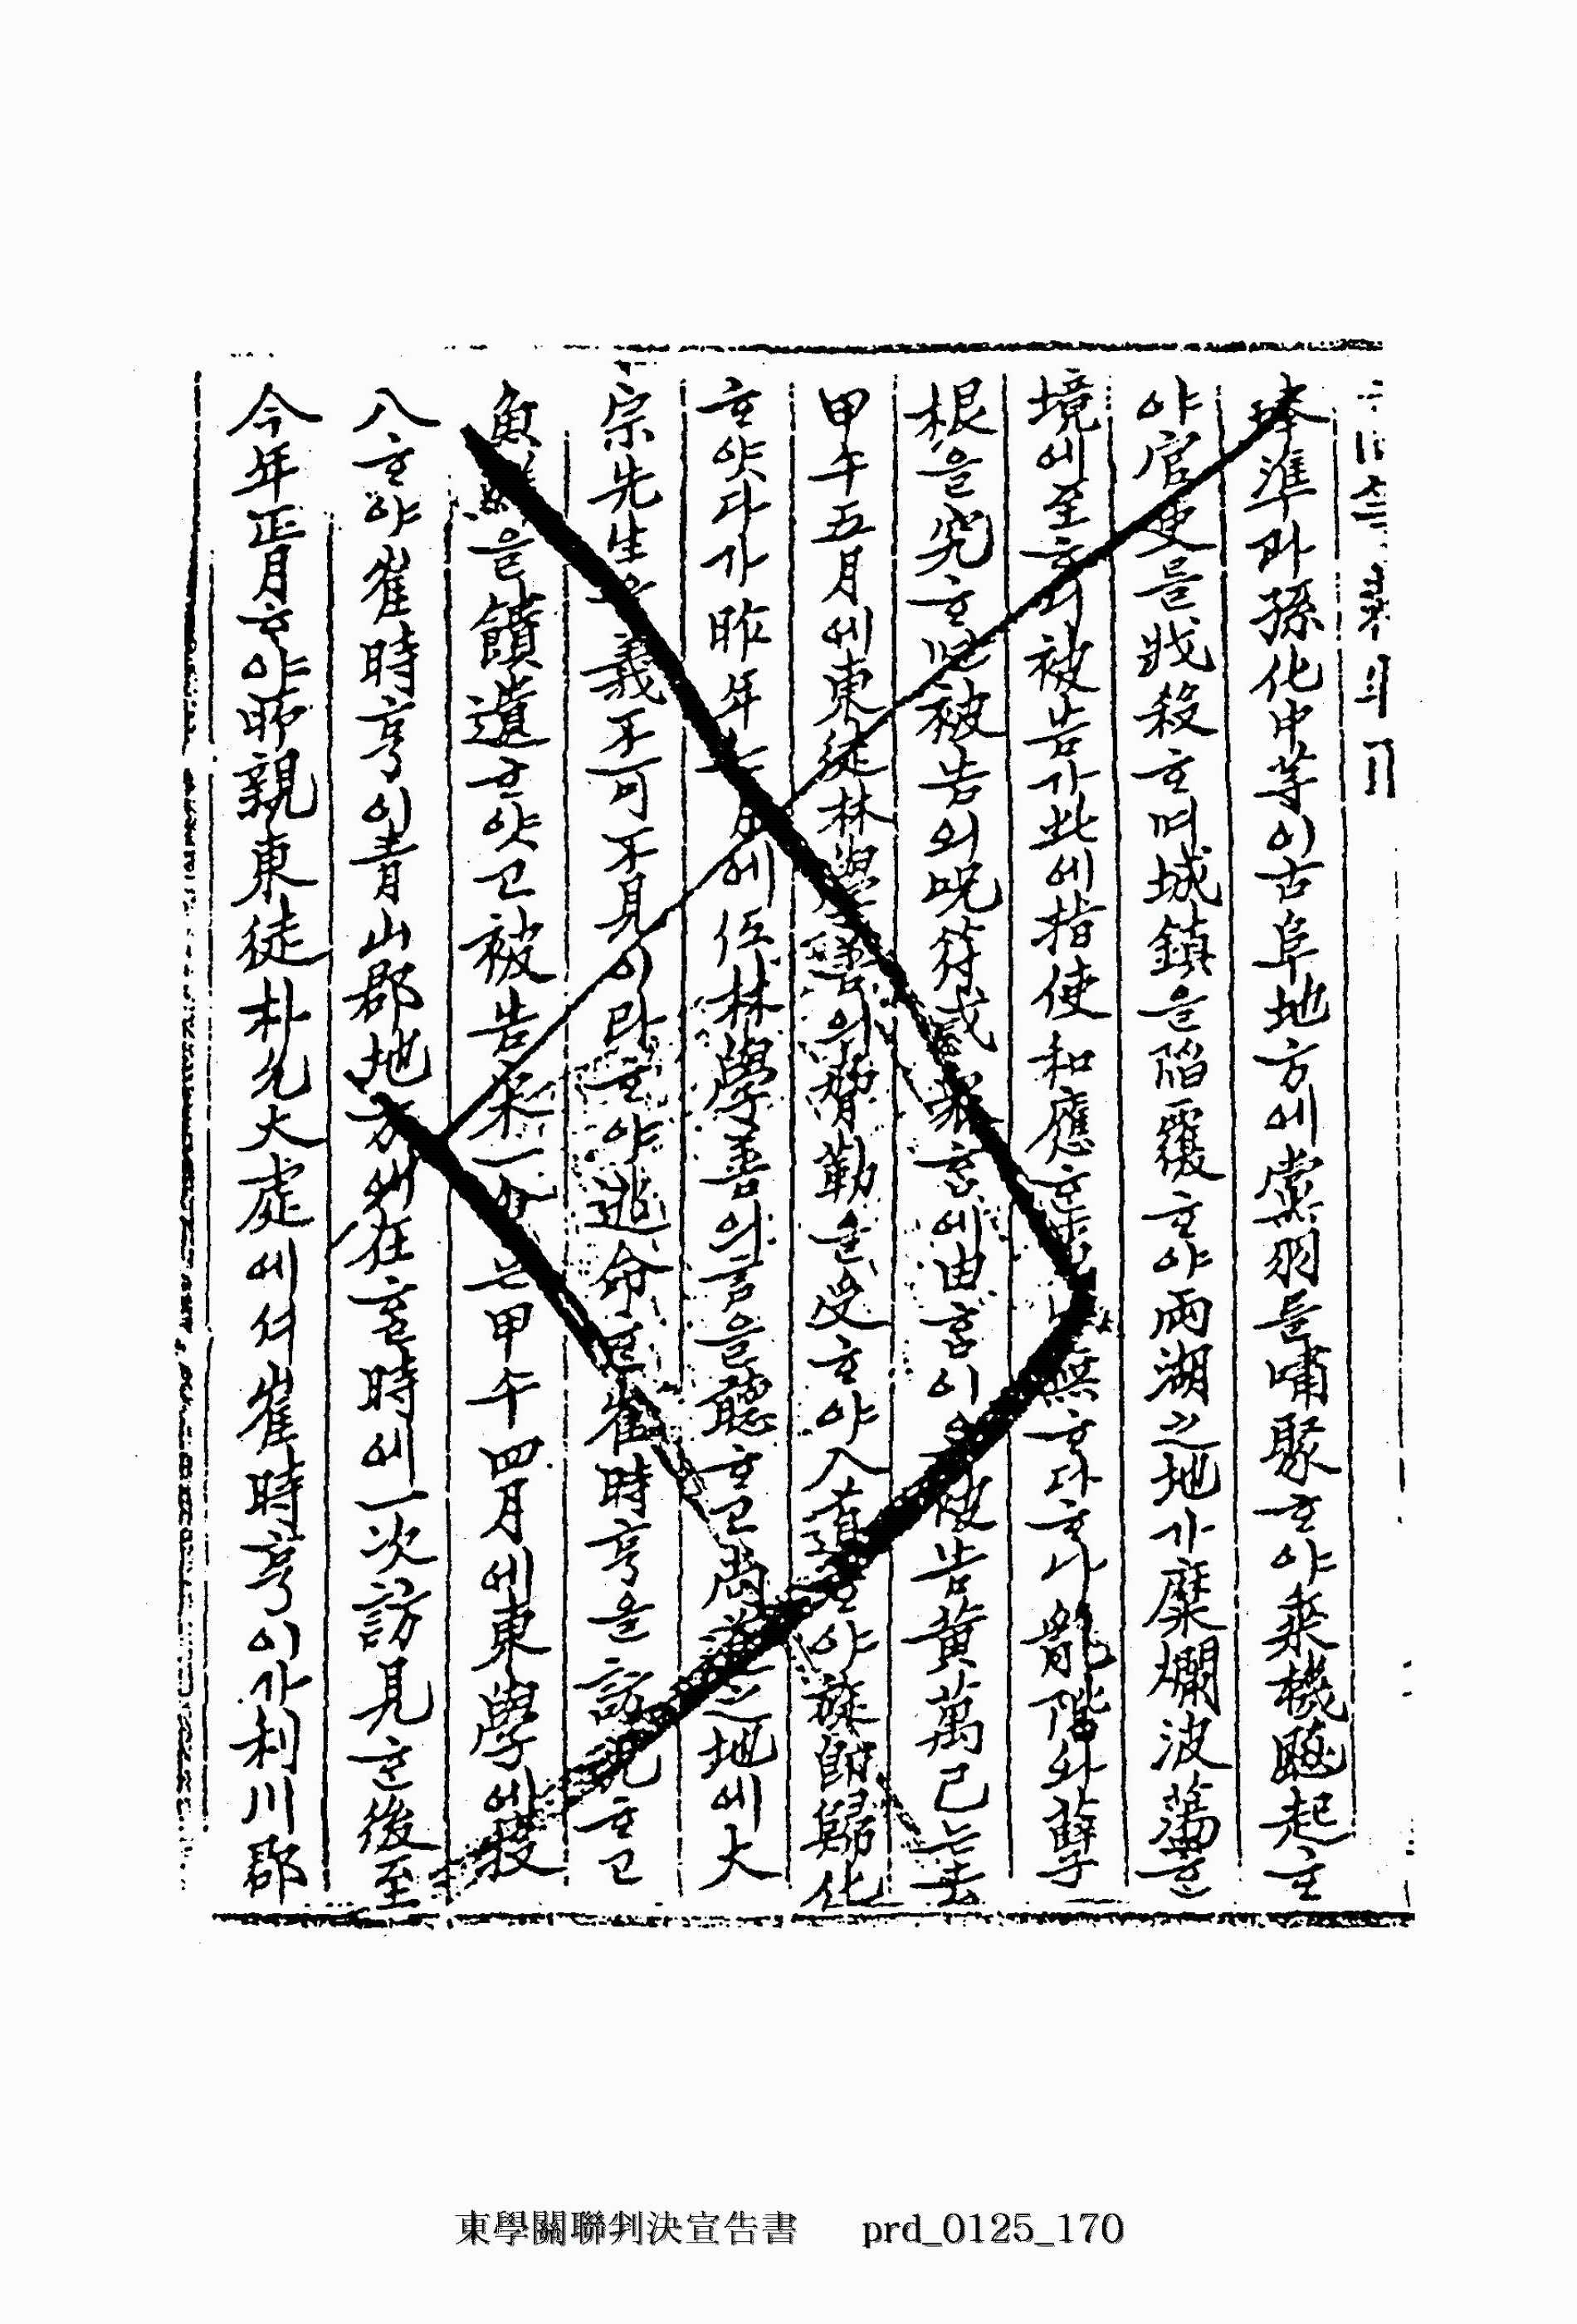 琫準과孫化中等이古阜地方에黨羽를嘯聚ᄒᆞ야乘機颷起ᄒᆞ
야官吏를戕殺ᄒᆞ며城鎭을陷覆ᄒᆞ야兩湖之地가糜爛波蕩ᄒᆞᆫ
境에至ᄒᆞ니被告가此에指使和應ᄒᆞᆫ無ᄒᆞ다ᄒᆞ나亂階와孼
根을究ᄒᆞ면被告의呪符惑衆홈에由홈이오被告黃萬己ᄂᆞᆫ去
甲午五月에東徒林學善의脅勒을受ᄒᆞ야入道ᄒᆞ야旋即歸化
ᄒᆞ얏다가昨年七月에仍林學善의言을聽ᄒᆞ고尙道之地에大
宗先生을義不可不見이라ᄒᆞ야逃命ᄒᆞᆫ崔時亨을訪見ᄒᆞ고
魚鮮을饋遺ᄒᆞ얏고被告宋一會ᄂᆞᆫ甲午四月에東學에投
入ᄒᆞ야崔時亨이靑山郡地方에在ᄒᆞᆫ時에一次訪見ᄒᆞᆫ後至
今年正月ᄒᆞ야所親東徒朴允大處에셔崔時亨이가利川郡
東學關聯判決宣告書 prd_0125_170